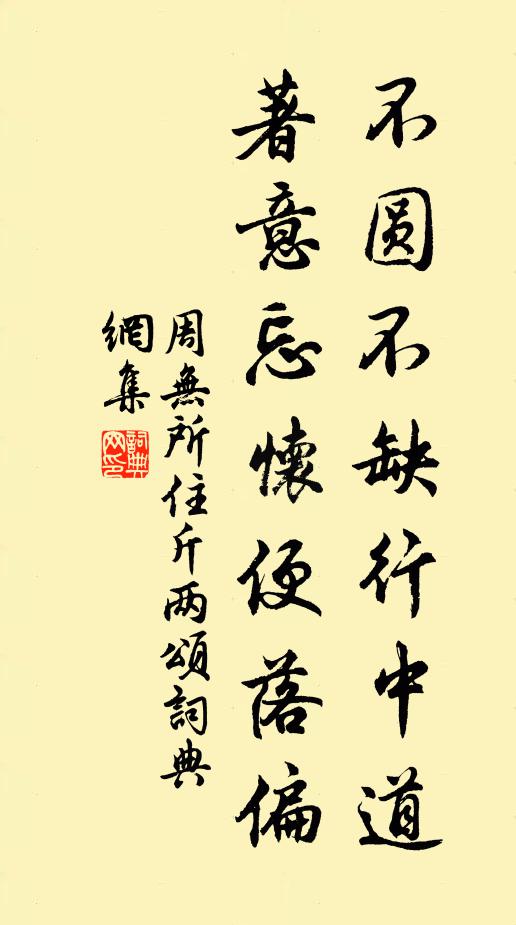 不圓不缺行中道
著意忘懷便落偏
周無所住斤两頌詞典
網集
詞典網印